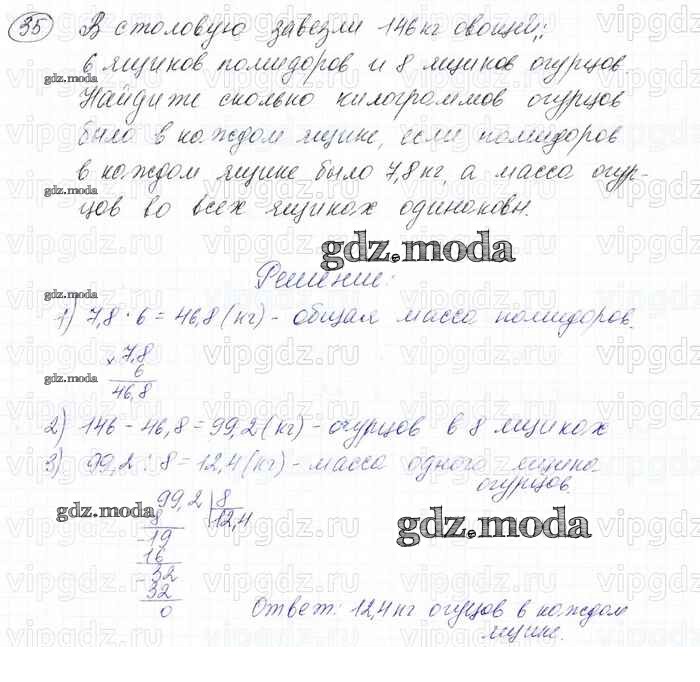 35 В столовую завезли 146 кг овощей:
6 ящиков помидоров и 8 ящиков огурцов.
gdz.moda
Найдите сколько килограммов огурцов
было в каждом ящике, если помидоров
в каждом ящике было 7,8 кг, а масса огур-
gdz.moda
цов во всех ящиках одинаковы.
gdz.moda
Решение:
gdz.moda
1) 7,8 · 6 = 46,8 (кг) - общая масса помидоров.
× 7,8
6
gdz.moda
46,8
2) 146 - 46,8 = 99,2 (кг) - огурцов в 8 ящиках
3) 99,2 : 8 = 12,4 (кг) - масса одного ящика
огурцов.
99,2 8
gdz.moda
8 12,4
19
gdz.moda
16
- 32
32
0
Ответ: 12,4 кг огуцов в каждом
ящике.
vipgdz.ru